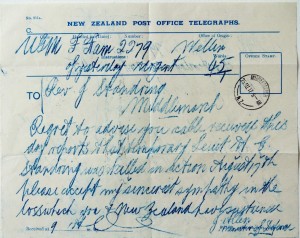 NEW ZEALAND POST OFFICE TELEGRAPHS.
Office of Origin.
OFFICE STAMP
TO
Rev J Standring
Regret to advise you cable received this
day reports that temporary Lieut
Standring was killed in action August 7th
please accept my sincere sympathy in the
loss which you & New Zealand have sustained
J Allen
Minister of Defence